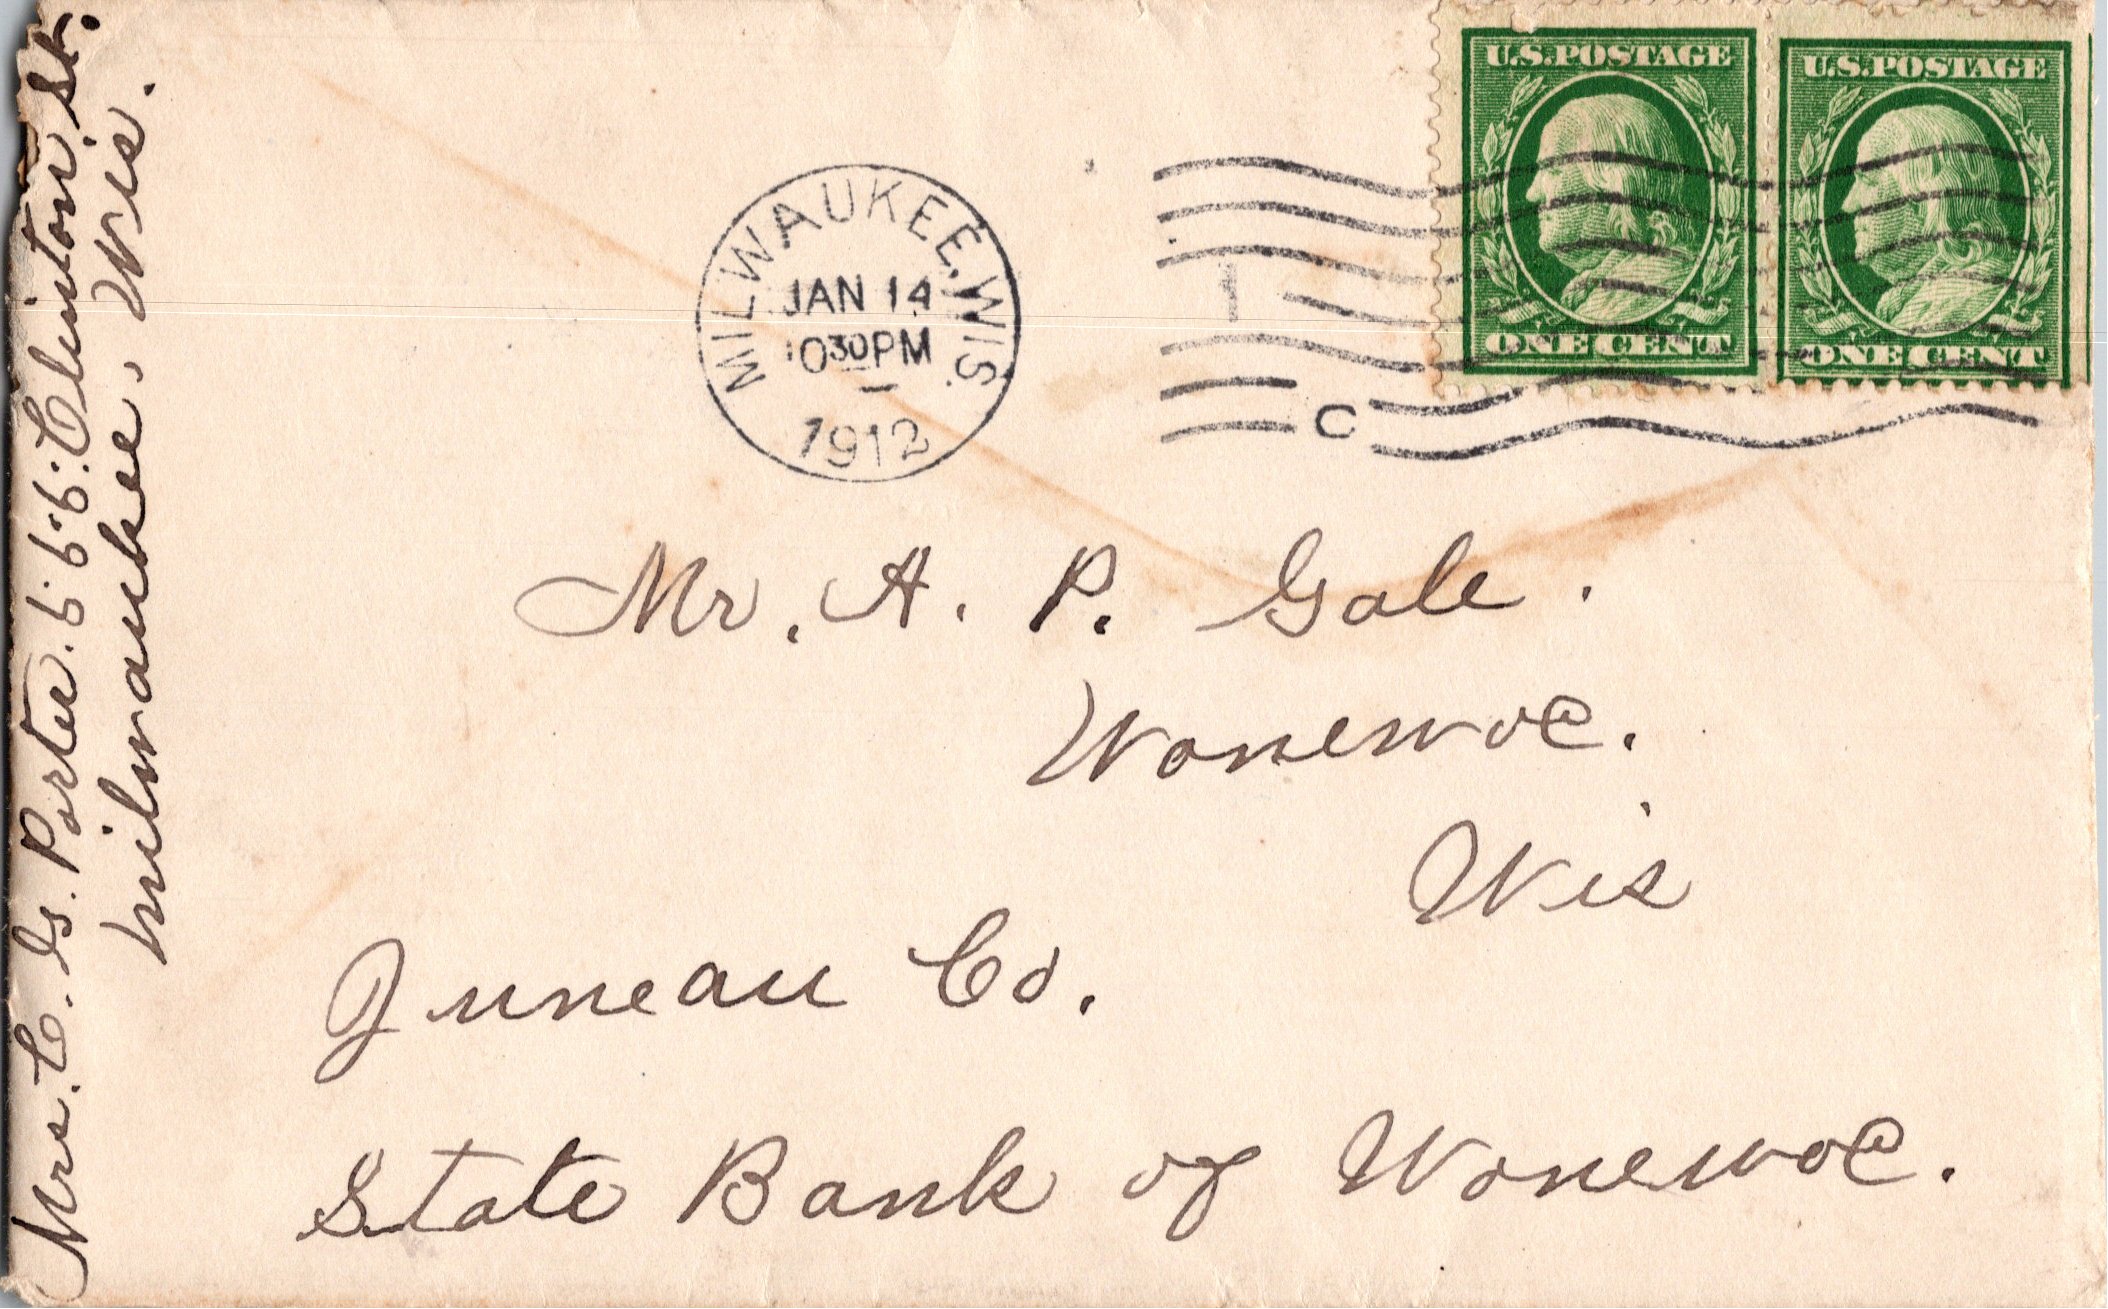 Mrs. C. G. Porter. 666. Clinton. St.
Milwaukee. Wis.
U.S. POSTAGE
ONE CENT
U.S. POSTAGE
ONE CENT
MILWAUKEE, WIS.
JAN 14
1030 PM
1912
C
Mr. A. P. Gale.
Wonewoc.
Wis
Juneau Co.
State Bank of Wonewoc.